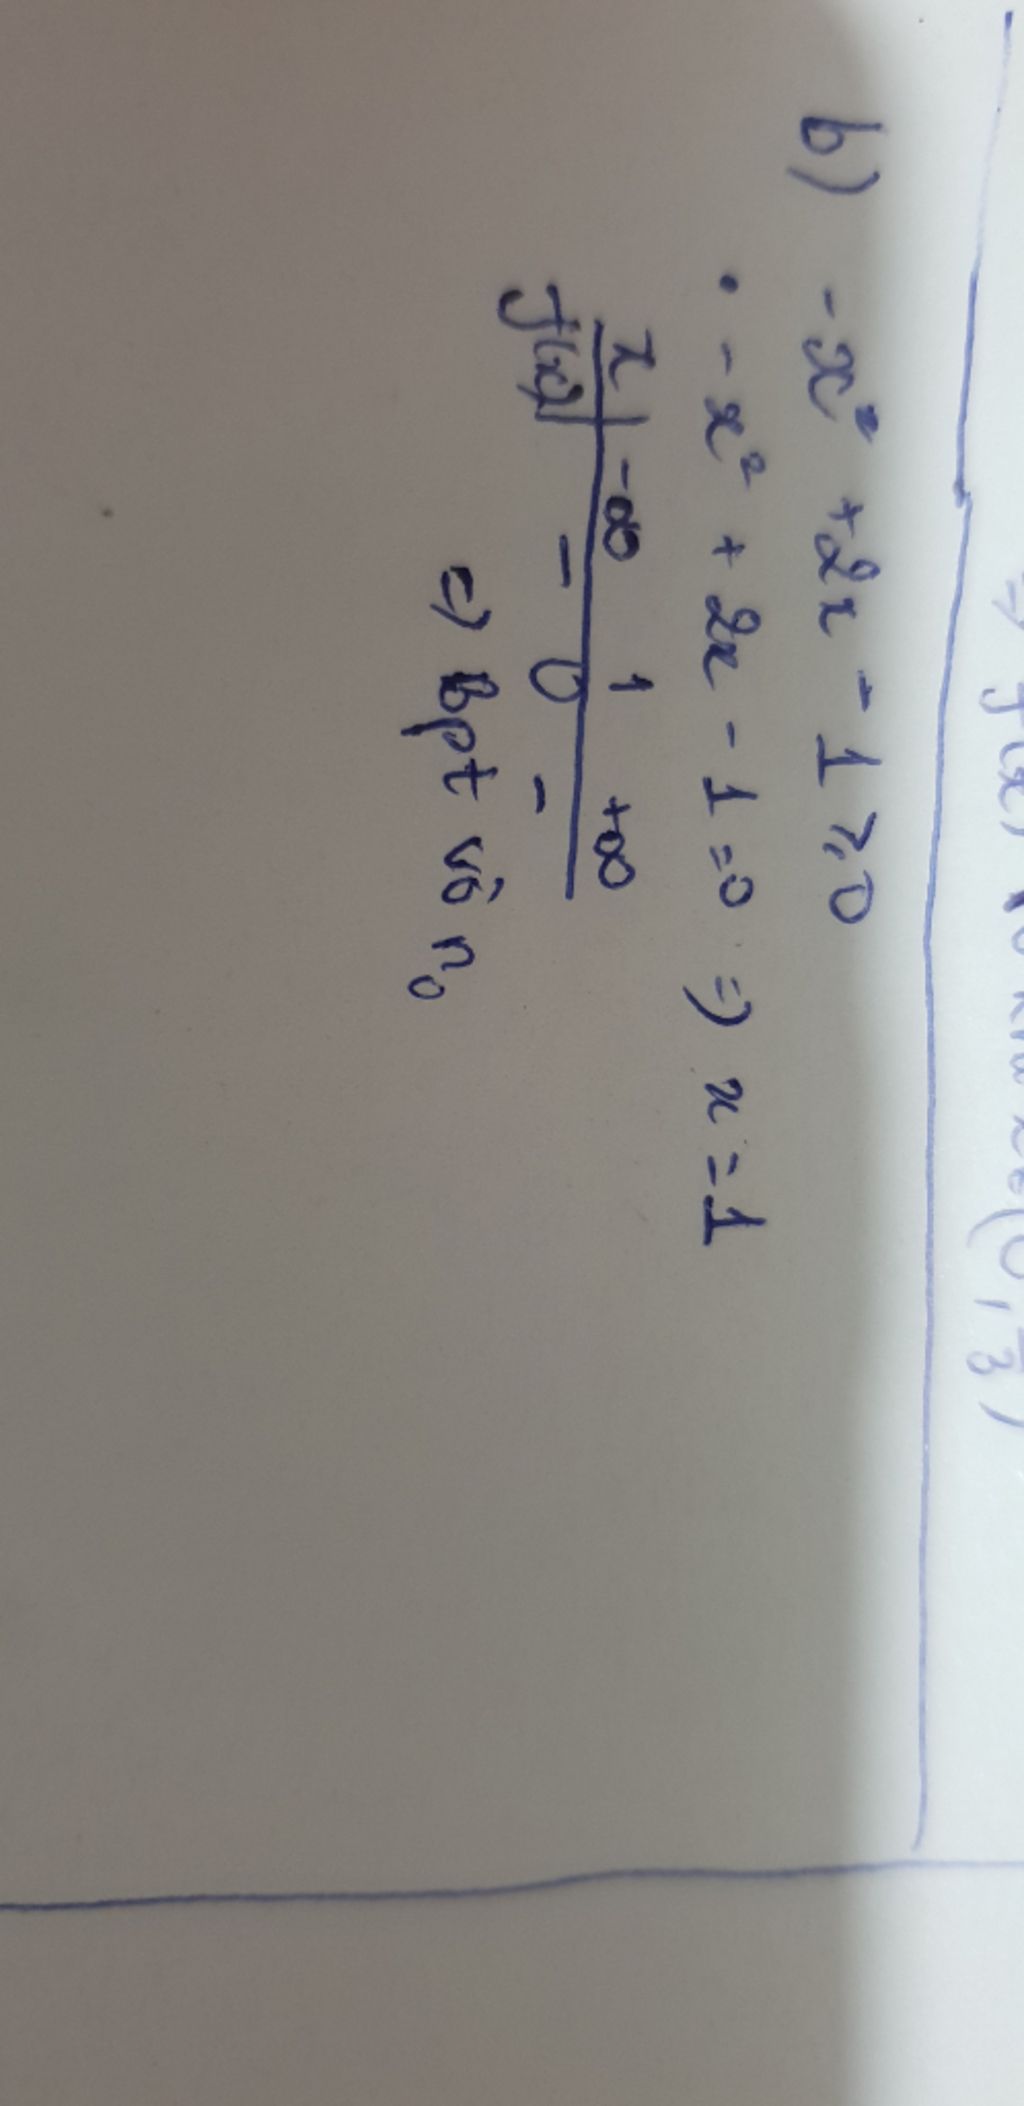 b) -x² + 2x - 1 ≥ 0
• -x² + 2x - 1 = 0 => x = 1
x | -∞ 1 +∞
f(x) | - 0 -
=> Bpt vô n₀